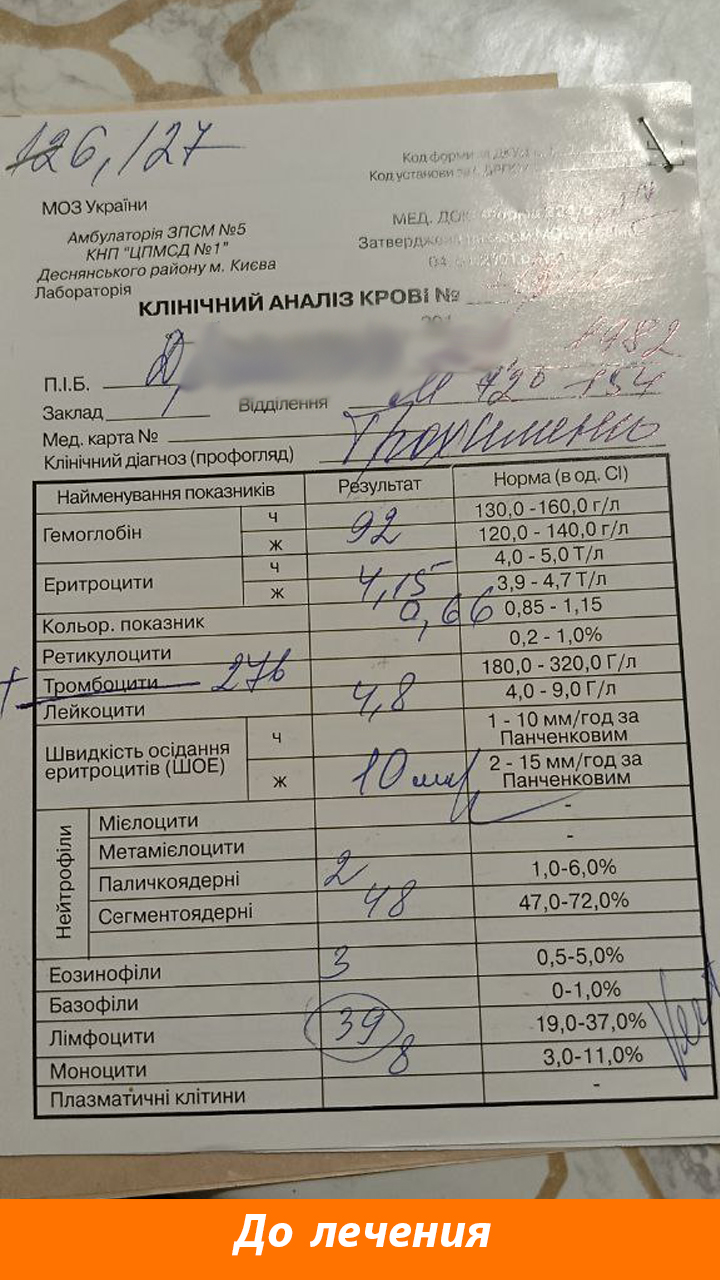 126, 127
Код форми за ДКУД
Код установи за
МОЗ України
МЕД. ДОК
Амбулаторія ЗПСМ №5
КНП "ЦПМСД №1"
Затверджена
Деснянського району м. Києва
Лабораторія
КЛІНІЧНИЙ АНАЛІЗ КРОВІ №
1982
П.І.Б.
Заклад Відділення
Мед. карта №
Клінічний діагноз (профогляд)
Найменування показників Результат Норма (в од. СІ)
Гемоглобін ч 130,0 - 160,0 г/л
ж 92 120,0 - 140,0 г/л
Еритроцити ч 4,0 - 5,0 Т/л
ж 4,15 3,9 - 4,7 Т/л
Кольор. показник 0,66 0,85 - 1,15
Ретикулоцити 0,2 - 1,0%
Тромбоцити 276 180,0 - 320,0 Г/л
Лейкоцити 4,8 4,0 - 9,0 Г/л
Швидкість осідання еритроцитів (ШОЕ) ч 1 - 10 мм/год за Панченковим
ж 10 2 - 15 мм/год за Панченковим
Нейтрофіли
Мієлоцити -
Метамієлоцити -
Паличкоядерні 2 1,0-6,0%
Сегментоядерні 48 47,0-72,0%
Еозинофіли 3 0,5-5,0%
Базофіли 0-1,0%
Лімфоцити 39 19,0-37,0%
Моноцити 8 3,0-11,0%
Плазматичні клітини -
До лечения